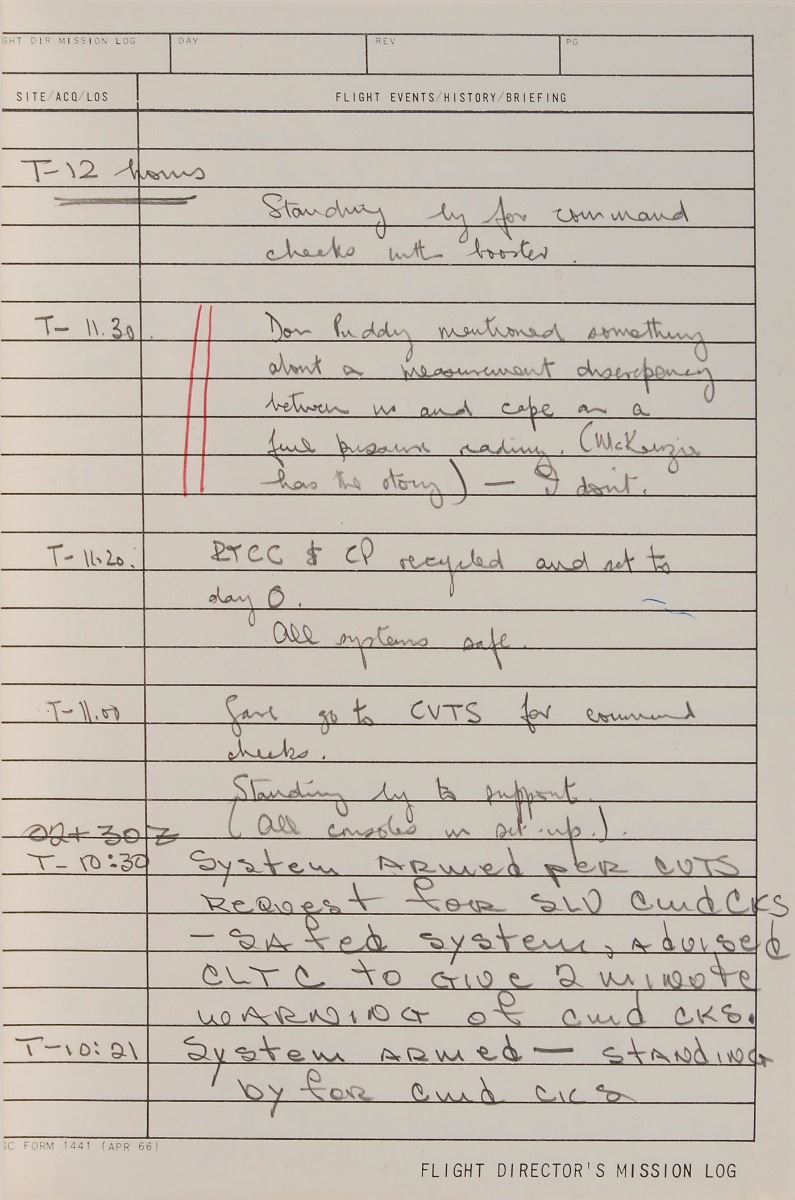 GHT DIR MISSION LOG DAY REV PG
SITE/ACQ/LOS FLIGHT EVENTS/HISTORY/BRIEFING
T-12 hours
Standing by for command
checks with booster.
T- 11.30. Don Puddy mentioned something
about a measurement discrepency
between us and cape on a
fuel pressure reading. (McKenzie
has the story) — I don't.
T- 11.20. RTCC & CP recycled and set to
day 0.
All systems safe.
T-11.00 Gave go to CVTS for command
checks.
Standing by to support.
02+30 Z (All consoles in set-up.).
T-10:30 System Armed per CVTS
Request for SLV Cmd CKS
- SAfed system, Advised
CLTC to Give 2 minute
WARNING of cmd CKS.
T-10:21 System ARMED — STANDING
by for cmd CKS
SC FORM 1441 (APR 66)
FLIGHT DIRECTOR'S MISSION LOG